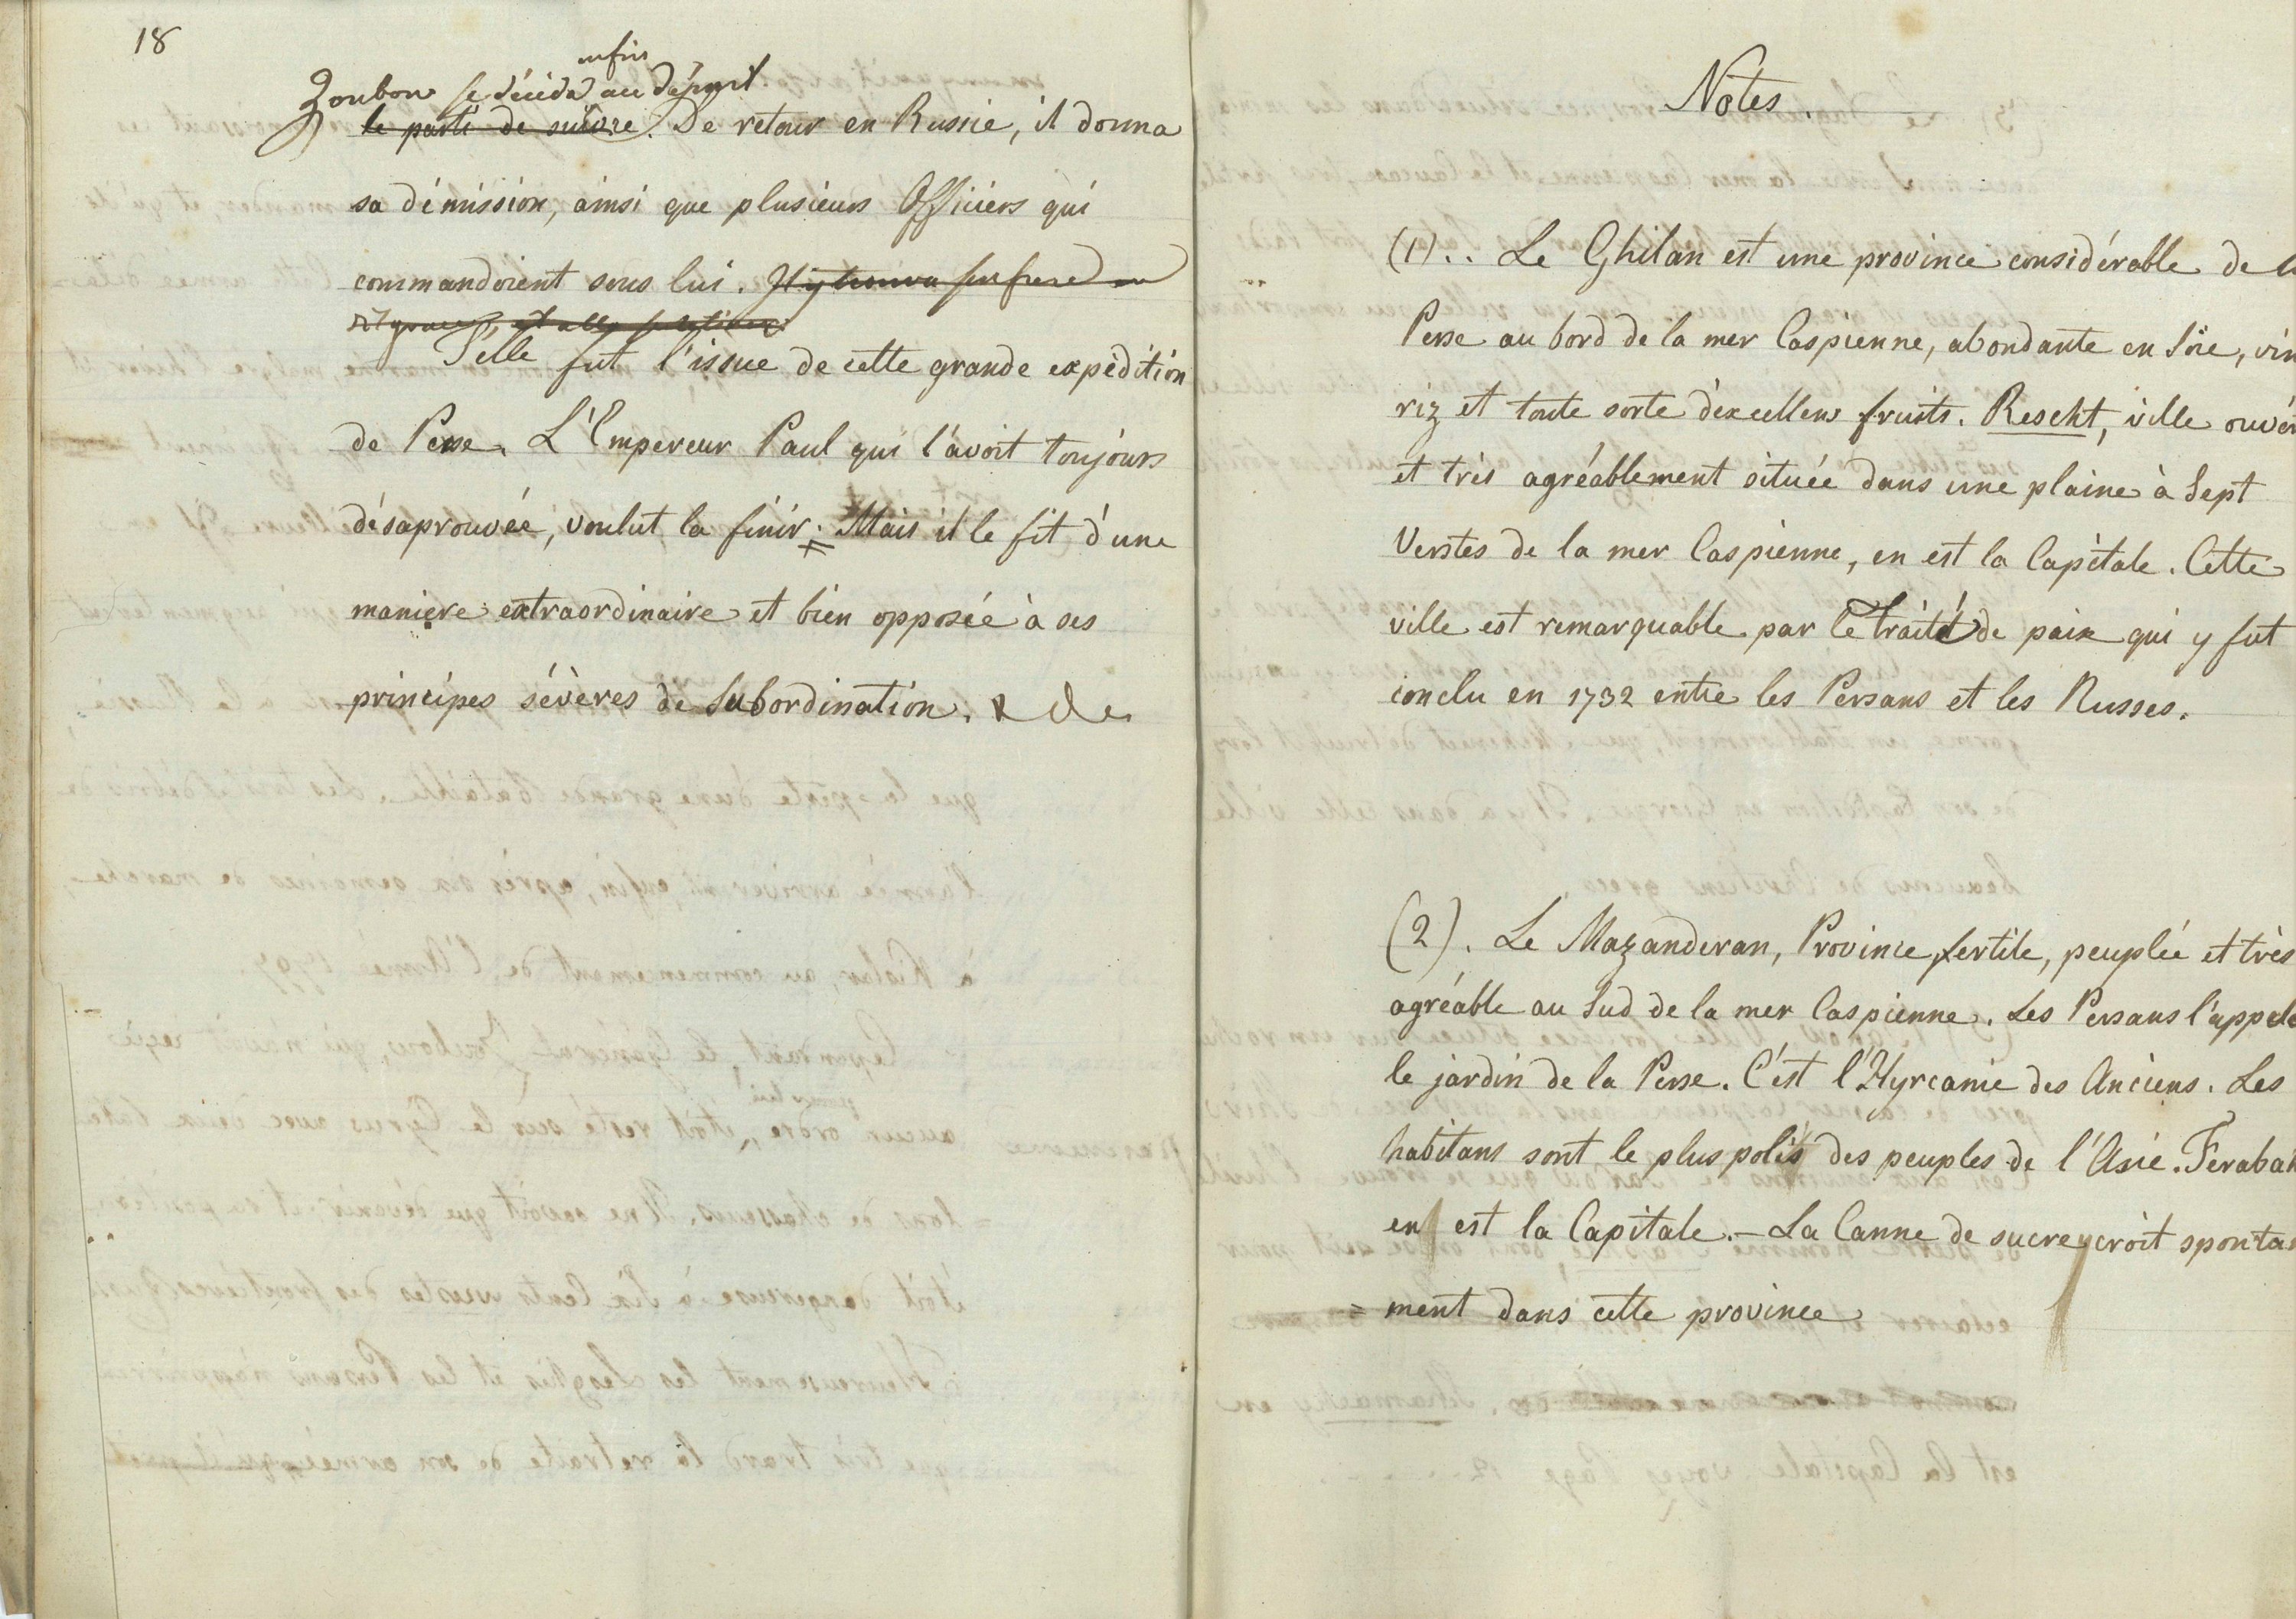 18
enfin
Zoubow se décida au départ
le parti de suivre. De retour en Russie, il donna
sa démission, ainsi que plusieurs Officiers qui
commandoient sous lui. Il y trouva son frere en
disgrace, et alla
Telle fut l'issue de cette grande expédition
de Perse. L'Empereur Paul qui l'avoit toujours
désaprouvée, voulut la finir; Mais il le fit d'une
maniere extraordinaire et bien opposée à ses
principes sévères de Subordination.
Notes.
(1).. Le Ghilan est une province considérable de la
Perse au bord de la mer Caspienne, abondante en Soie, vin
riz et toute sorte d'excellens fruits. Rescht, ville ouver
et très agréablement située dans une plaine à Sept
Verstes de la mer Caspienne, en est la Capitale. Cette
ville est remarquable par le traité de paix qui y fut
conclu en 1732 entre les Persans et les Russes.
(2). Le Mazanderan, Province fertile, peuplée et très
agréable au Sud de la mer Caspienne. Les Persans l'appele
le jardin de la Perse. C'est l'Hyrcanie des Anciens. Les
habitans sont le plus polis des peuples de l'Asie. Ferabat
en est la Capitale.- La Canne de sucre y croit spontan
= ment dans cette province